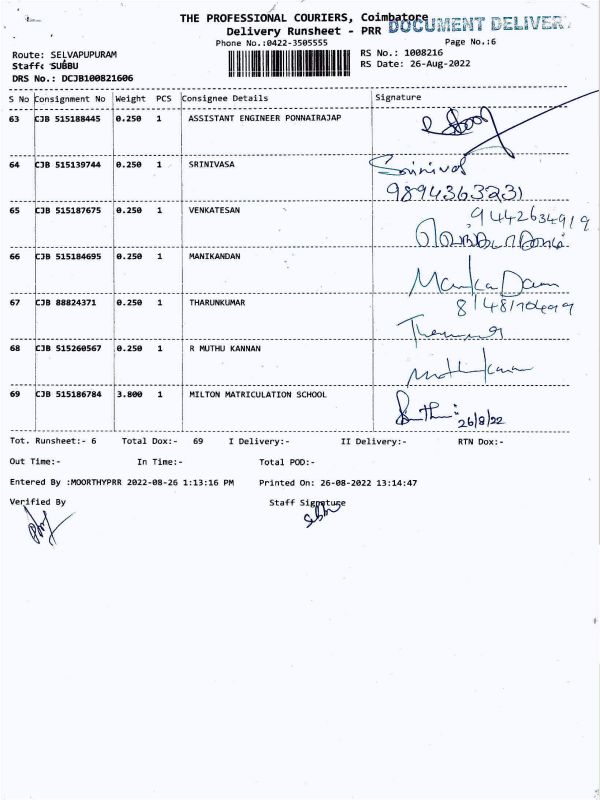 THE PROFESSIONAL COURIERS, Coimbatore
DOCUMENT DELIVER
Delivery Runsheet - PRR
Phone No.:0422-3505555
Page No.:6
Route: SELVAPUPURAM
RS No.: 1008216
Staff: SUBBU
RS Date: 26-Aug-2022
DRS No.: DCJB100821606
S No Consignment No Weight PCS Consignee Details Signature
63 CJB 515188445 0.250 1 ASSISTANT ENGINEER PONNAIRAJAP
64 CJB 515139744 0.250 1 SRINIVASA Srinivas
9894363231
65 CJB 515187675 0.250 1 VENKATESAN 9442634919
66 CJB 515184695 0.250 1 MANIKANDAN
67 CJB 88824371 0.250 1 THARUNKUMAR
68 CJB 515260567 0.250 1 R MUTHU KANNAN
69 CJB 515186784 3.800 1 MILTON MATRICULATION SCHOOL
26/8/22
Tot. Runsheet:- 6 Total Dox:- 69 I Delivery:- II Delivery:- RTN Dox:-
Out Time:- In Time:- Total POD:-
Entered By :MOORTHYPRR 2022-08-26 1:13:16 PM Printed On: 26-08-2022 13:14:47
Verified By Staff Signature